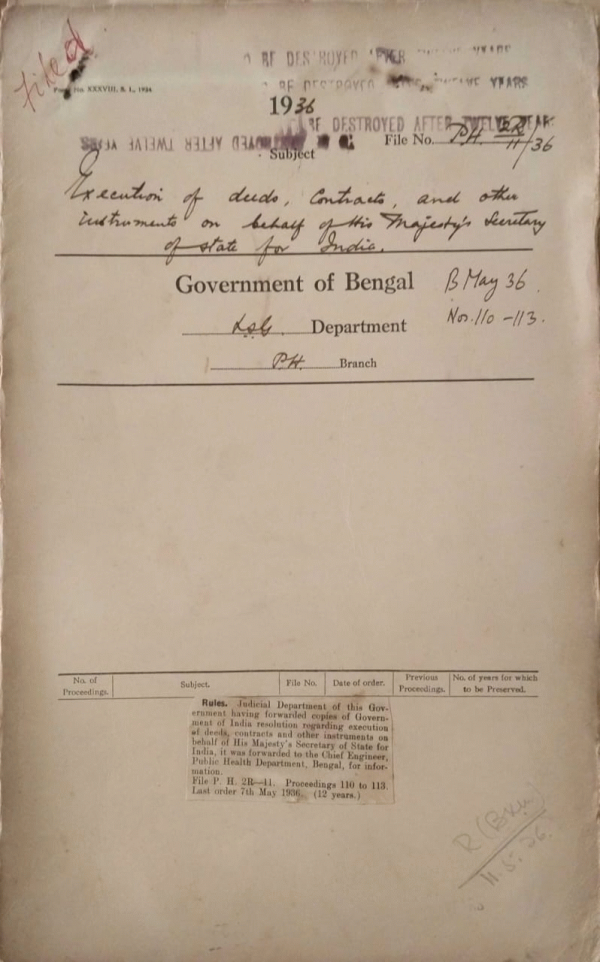 Filed
Form No. XXXVIII, S. I., 1934
TO BE DESTROYED AFTER TWELVE YEARS
TO BE DESTROYED AFTER TWELVE YEARS
1936
BE DESTROYED AFTER TWELVE YEAR
DESTROYED AFTER TWELVE YEARS
File No. P.H. 2R/11/36
Subject
Execution of deeds, Contracts, and other
instruments on behalf of His Majesty's Secretary
of state for India.
Government of Bengal
B May 36.
Nos. 110-113.
L.S.G. Department
P.H. Branch
No. of Proceedings.
Subject.
File No.
Date of order.
Previous Proceedings.
No. of years for which to be Preserved.
Rules. Judicial Department of this Gov-
ernment having forwarded copies of Govern-
ment of India resolution regarding execution
of deeds, contracts and other instruments on
behalf of His Majesty's Secretary of State for
India, it was forwarded to the Chief Engineer,
Public Health Department, Bengal, for infor-
mation.
File P. H. 2R—11. Proceedings 110 to 113.
Last order 7th May 1936. (12 years.)
11.5.36.